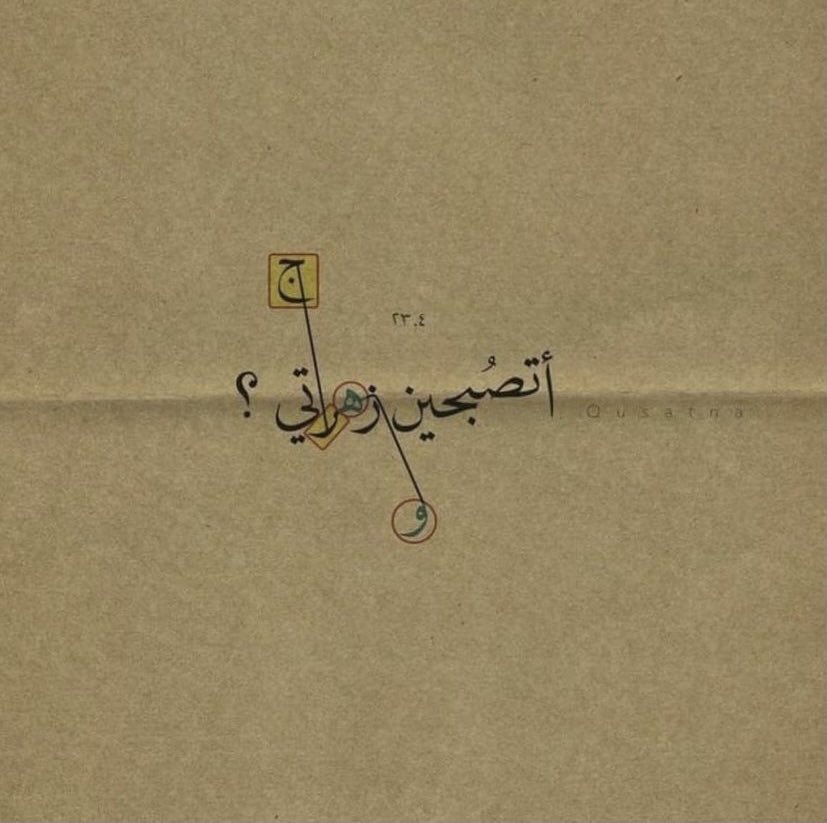 ج
٢٣.٤
أتصُبحين زهرتي ؟
Qusatna
و